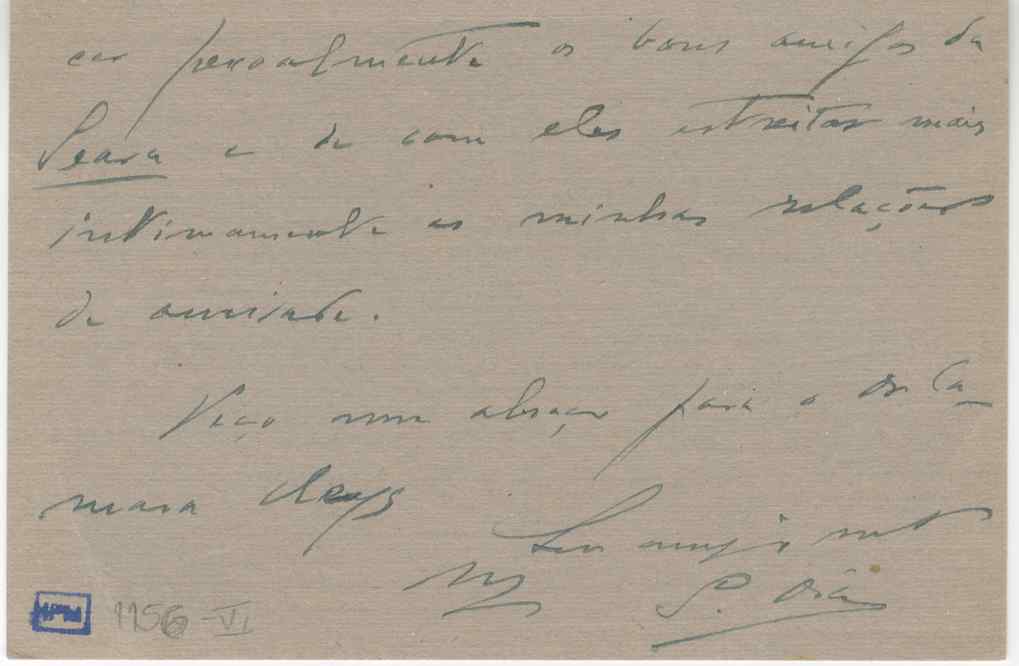 car pessoalmente os bons amigos da
Seara e de com eles estreitar mais
intimamente as minhas relações
de amisade.
Peço um abraço para o Dr Ca-
mara Reys
Seu amigo mt
S. Dias
1156-VI